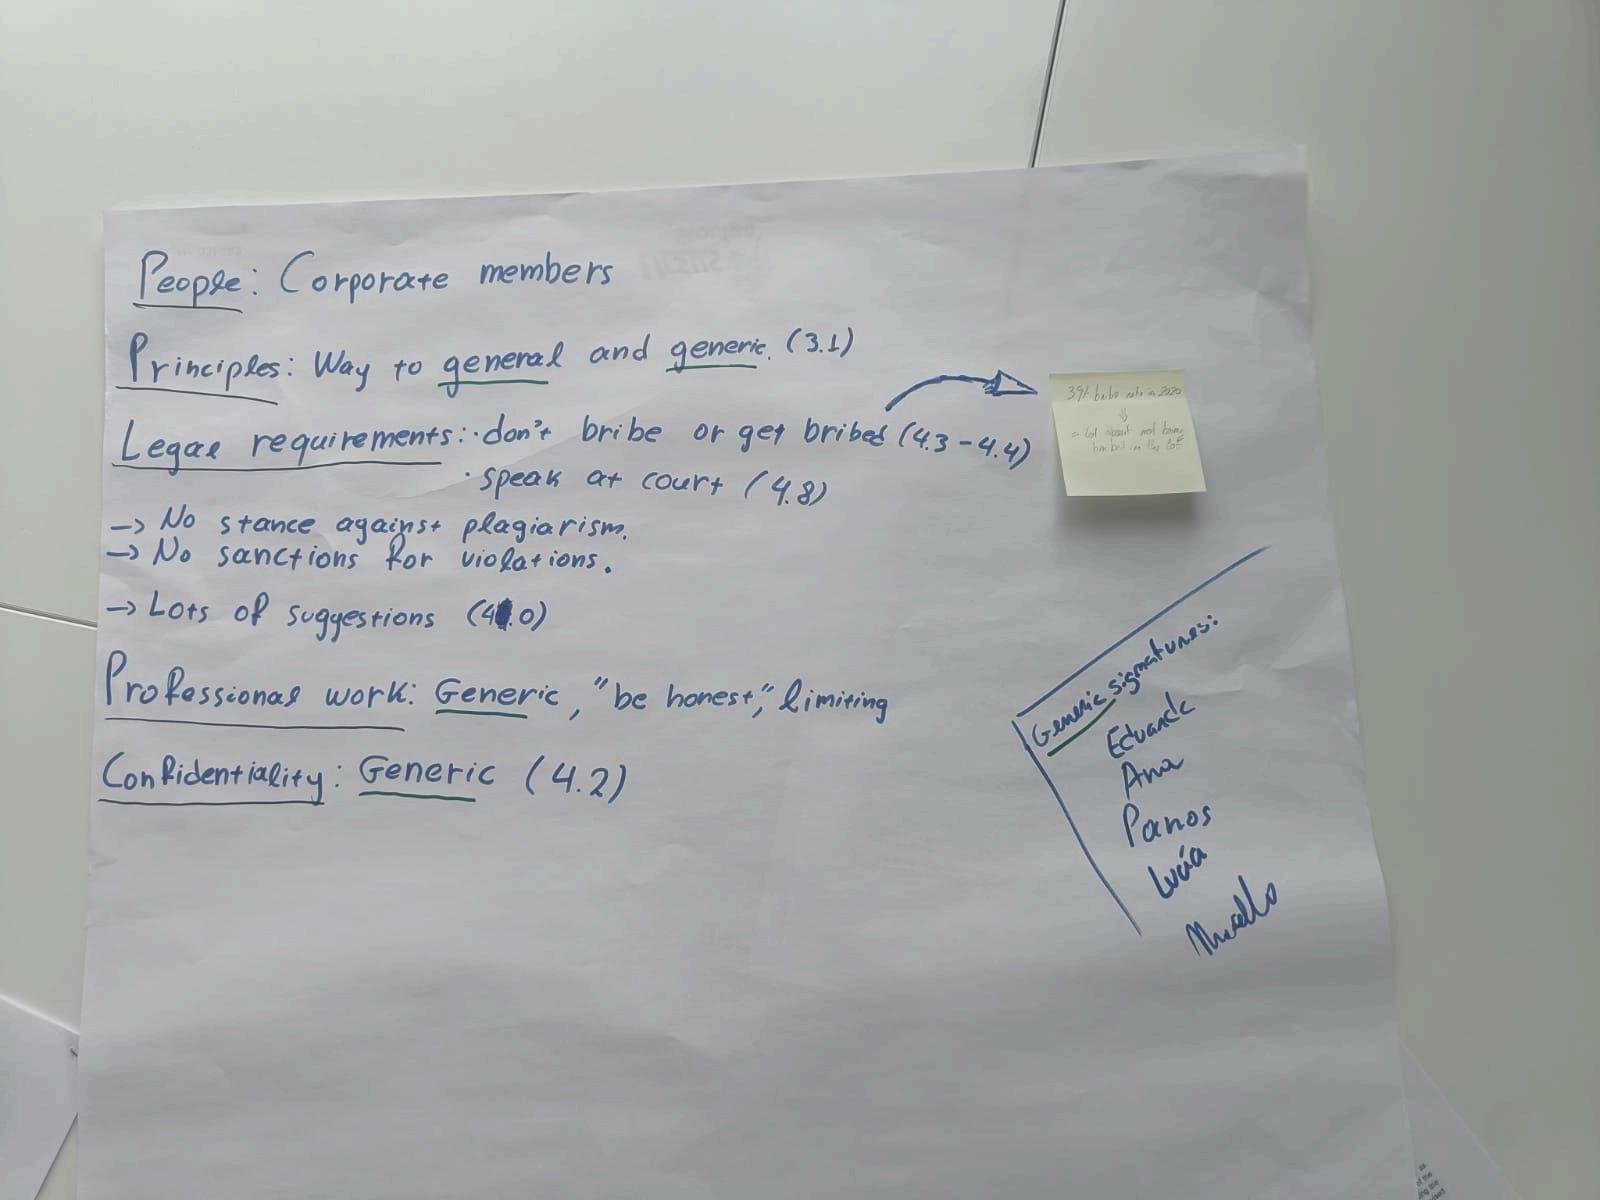 People: Corporate members
Principles: Way to general and generic. (3.1)
Legal requirements: · don't bribe or get bribed (4.3-4.4)
· speak at court (4.8)
-> No stance against plagiarism.
-> No sanctions for violations.
-> Lots of suggestions (4.0)
Professional work: Generic, "be honest," limiting
Confidentiality: Generic (4.2)
in 2020
a lot about not being
Generic signatures:
Ana
Panos
Lucía